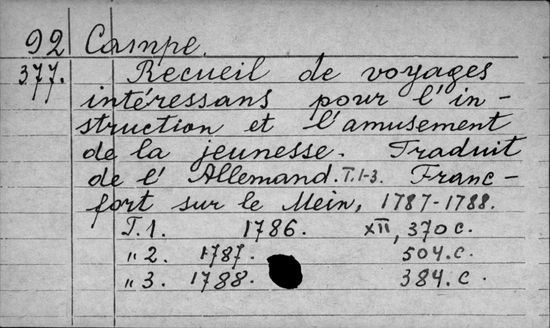 92 Campe.
377. Recueil de voyages
intéressans pour l'in-
struction et l'amusement
de la jeunesse. Traduit
de l' Allemand. T.1-3. Franc-
fort sur le Mein, 1787-1788.
T.1. 1786. XII, 370 c.
„ 2. 1787. 504. c.
„ 3. 1788. 384. c.